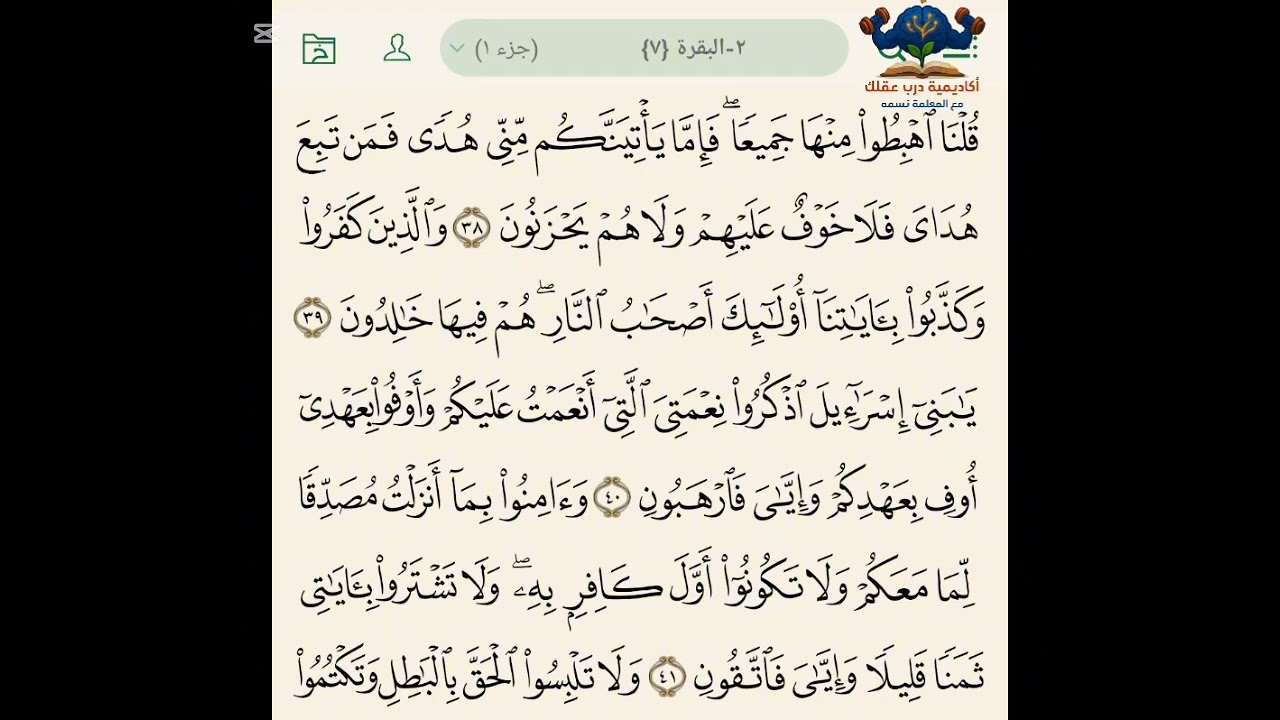 ٢-البقرة {٧} (جزء ١)
خ
أكاديمية درب عقلك
مع المعلمة نسمه
قُلْنَا ٱهْبِطُوا۟ مِنْهَا جَمِيعًا ۖ فَإِمَّا يَأْتِيَنَّكُم مِّنِّى هُدًى فَمَن تَبِعَ
هُدَاىَ فَلَا خَوْفٌ عَلَيْهِمْ وَلَا هُمْ يَحْزَنُونَ ٣٨ وَٱلَّذِينَ كَفَرُوا۟
وَكَذَّبُوا۟ بِـَٔايَـٰتِنَآ أُو۟لَـٰٓئِكَ أَصْحَـٰبُ ٱلنَّارِ ۖ هُمْ فِيهَا خَـٰلِدُونَ ٣٩
يَـٰبَنِىٓ إِسْرَٰٓءِيلَ ٱذْكُرُوا۟ نِعْمَتِىَ ٱلَّتِىٓ أَنْعَمْتُ عَلَيْكُمْ وَأَوْفُوا۟ بِعَهْدِىٓ
أُوفِ بِعَهْدِكُمْ وَإِيَّـٰىَ فَٱرْهَبُونِ ٤٠ وَءَامِنُوا۟ بِمَآ أَنزَلْتُ مُصَدِّقًا
لِّمَا مَعَكُمْ وَلَا تَكُونُوٓا۟ أَوَّلَ كَافِرٍۭ بِهِۦ ۖ وَلَا تَشْتَرُوا۟ بِـَٔايَـٰتِى
ثَمَنًا قَلِيلًا وَإِيَّـٰىَ فَٱتَّقُونِ ٤١ وَلَا تَلْبِسُوا۟ ٱلْحَقَّ بِٱلْبَـٰطِلِ وَتَكْتُمُوا۟